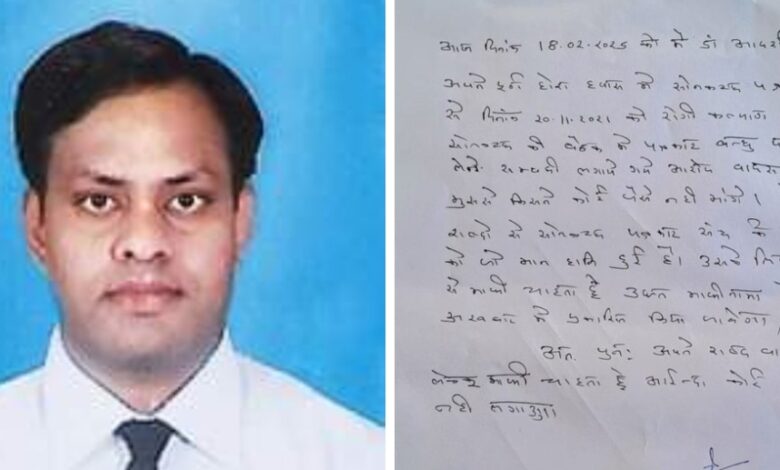 आज दिनांक 18.02.2025 को मैं डॉ आदर्श
अपने पूर्ण होश हवास में सोनकच्छ पत्र
से दिनांक 20.11.2021 को रोगी कल्याण
सोनकच्छ की बैठक में पत्रकार बन्धु
लेने सम्बन्धी लगाये गये आरोप वापस
मुझसे किसी ने कोई पैसे नहीं मांगे।
शब्दों से सोनकच्छ पत्रकार संघ के
को जो मान हानि हुई है। उसके लिए
से माफी चाहता हूँ उक्त माफीनामा
अखबार में प्रसारित किया जायेगा
अतः पुनः अपने शब्द वा
लेकर माफी चाहता हूँ आईन्दा कोई
नहीं लगाऊंगा